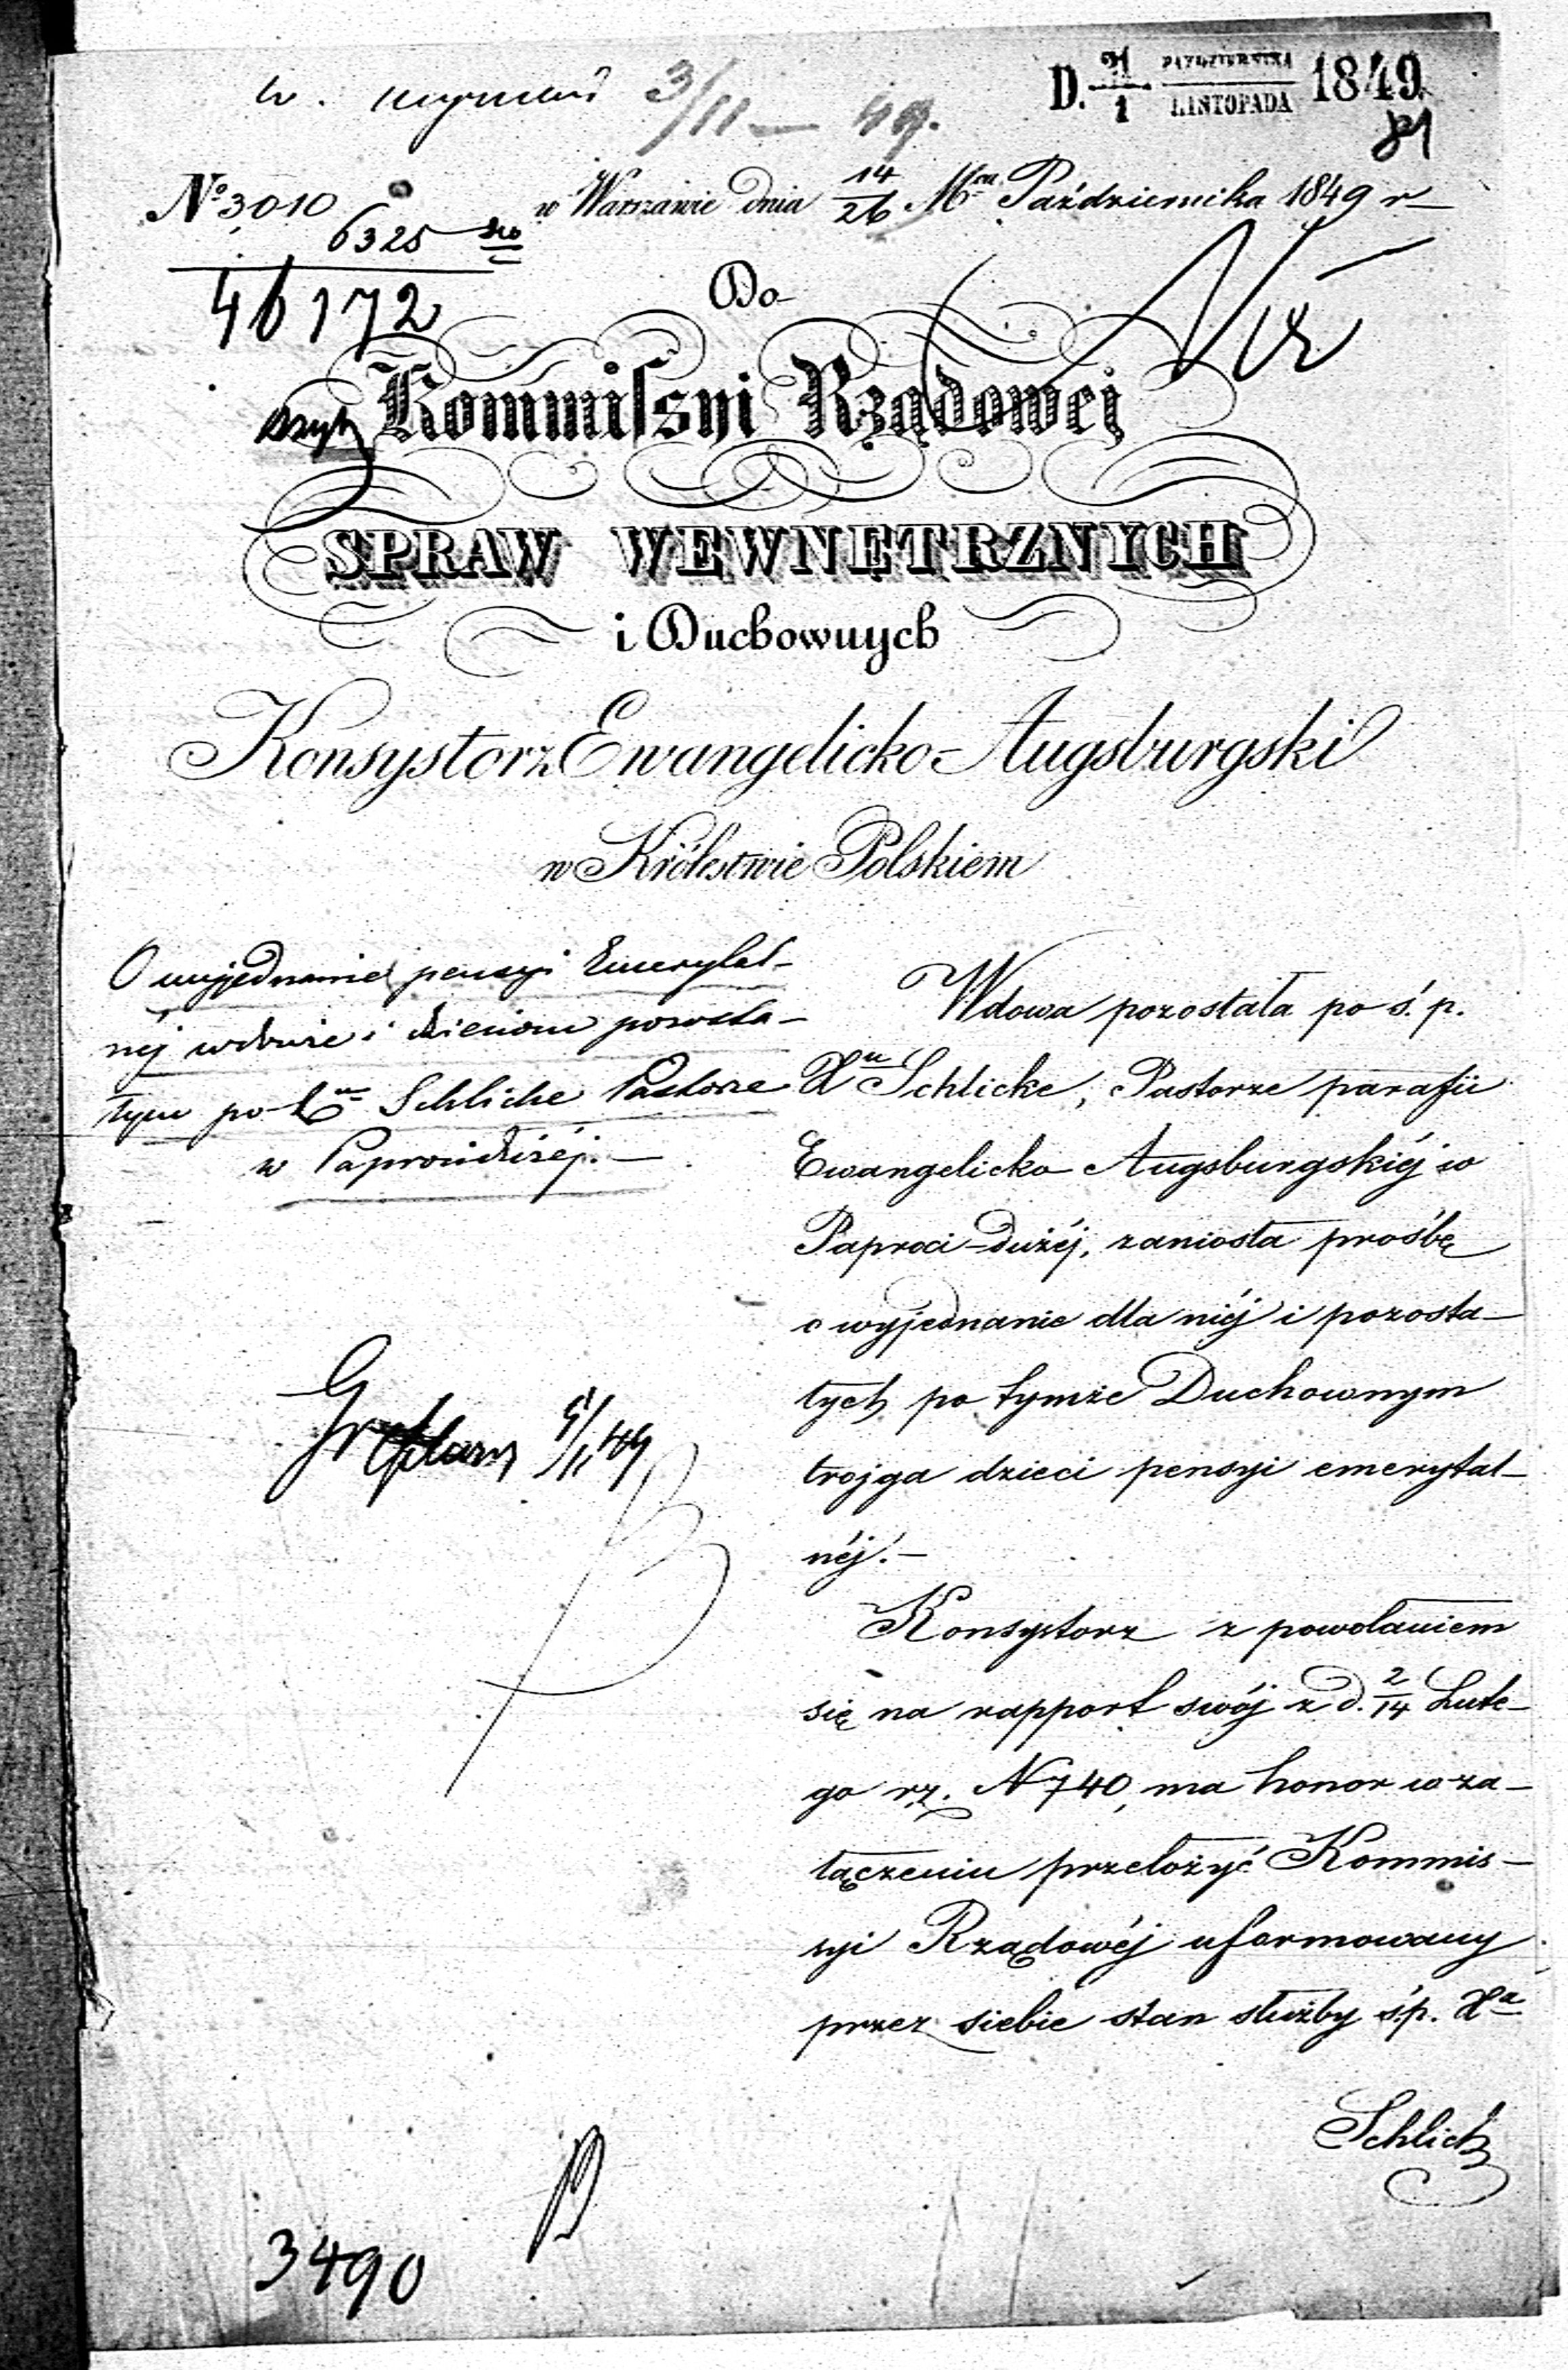 3/11 – 49.
D. 21/1 PAŹDZIERNIKA/LISTOPADA 1849
81
No 3010
6325
46172
w Warszawie dnia 14/26 Mca Października 1849 r
Do
Kommissyi Rządowej
SPRAW WEWNĘTRZNYCH
i Duchownych
Konsystorz Ewangelicko-Augsburgski
w Królestwie Polskiem
O wyjednanie pensyi Emerytal-
nej wdowie i dzieciom pozosta-
łym po Xu Schlicke Pastorze
w Paproci dużéj. –
Wdowa pozostała po ś. p.
Xu Schlicke, Pastorze parafii
Ewangelicko Augsburgskiéj w
Paproci-dużéj, zaniosła prośbę
o wyjednanie dla niéj i pozosta-
łych po tymże Duchownym
trojga dzieci pensyi emerytal-
néj. –
Konsystorz z powołaniem
się na rapport swój z d. 2/14 Lute-
go r.z. N 740, ma honor w za-
łączeniu przełożyć Kommis-
syi Rządowéj uformowany
przez siebie stan służby ś.p. Xa
Schlicke
5/11 49
3490